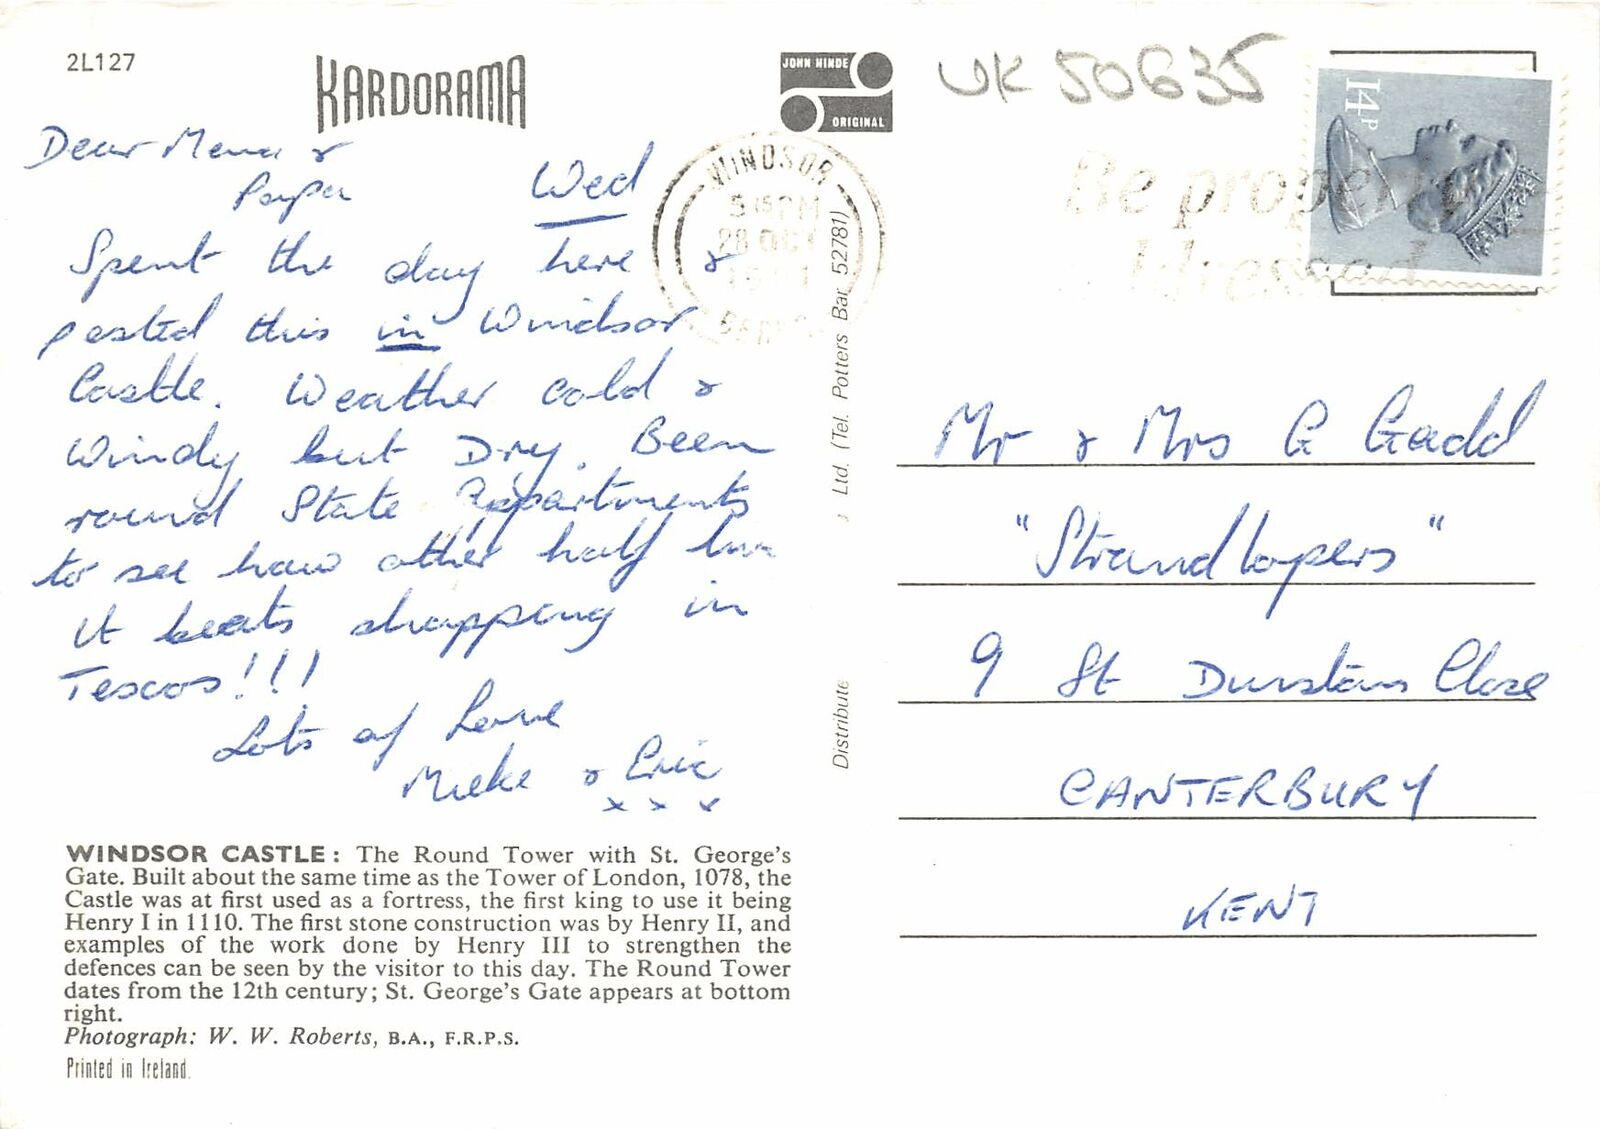 2L127
KARDORAMA
JOHN HINDE
ORIGINAL
UK 50635
14P
WINDSOR
5 15 PM
28 OCT
Be properly
Addressed
Dear Mema &
Papa
Wed
Spent the day here &
posted this in Windsor
Castle. Weather cold &
Windy but Dry. Been
round State Appartments
to see how other half live
It beats shopping in
Tescos!!!
Lots of Love
Mieke & Eric
x x x
Mr & Mrs G Gadd
"Strandlopers"
9 St Dunstans Close
CANTERBURY
KENT
Distribute
Ltd. (Tel. Potters Bar 52781)
WINDSOR CASTLE: The Round Tower with St. George's
Gate. Built about the same time as the Tower of London, 1078, the
Castle was at first used as a fortress, the first king to use it being
Henry I in 1110. The first stone construction was by Henry II, and
examples of the work done by Henry III to strengthen the
defences can be seen by the visitor to this day. The Round Tower
dates from the 12th century; St. George's Gate appears at bottom
right.
Photograph: W. W. Roberts, B.A., F.R.P.S.
Printed in Ireland.